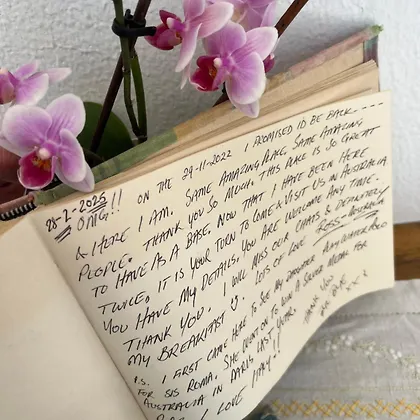 28-2-2025
OMG!! ON THE 29-11-2022 I PROMISED ID BE BACK----
& HERE I AM. SAME AMAZING PLACE, SAME AMAZING
PEOPLE. THANK YOU SO MUCH. THIS PLACE IS SO GREAT
TO HAVE AS A BASE. NOW THAT I HAVE BEEN HERE
TWICE, IT IS YOUR TURN TO COME & VISIT US IN AUSTRALIA
YOU HAVE MY DETAILS, YOU ARE WELCOME ANY TIME.
THANK YOU. I WILL MISS OUR CHATS & DEFINITELY
MY BREAKFAST. LOTS OF LOVE ROSS-AUSTRALIA
P.S. I FIRST CAME HERE TO SEE MY DAUGHTER PLAY WATER POLO
FOR SIS ROMA. SHE WENT ON TO WIN A SILVER MEDAL FOR
AUSTRALIA IN PARIS LAST YEAR. THANK YOU
I LOVE ITALY!!